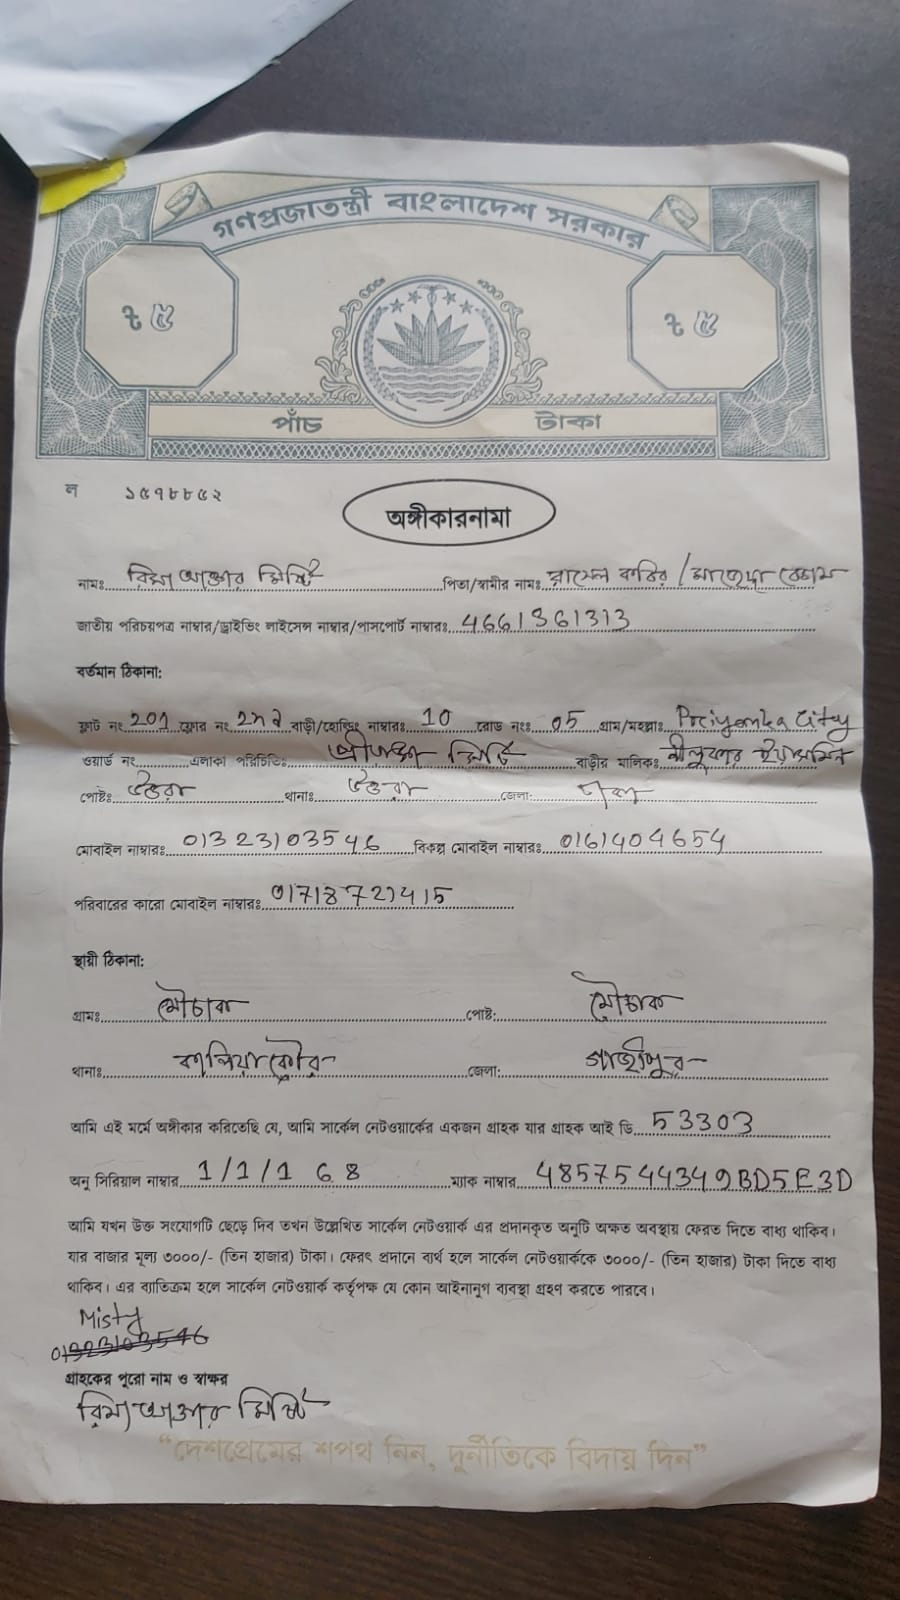 গণপ্রজাতন্ত্রী বাংলাদেশ সরকার
৳ ৫ ৳ ৫
পাঁচ টাকা
ল ১৫৭৮৮৫২
অঙ্গীকারনামা
নামঃ রিমা আক্তার মিষ্টি পিতা/স্বামীর নামঃ রাসেল কবির / মাজেদা বেগম
জাতীয় পরিচয়পত্র নাম্বার/ড্রাইভিং লাইসেন্স নাম্বার/পাসপোর্ট নাম্বারঃ 4661361313
বর্তমান ঠিকানা:
ফ্লাট নং 201 ফ্লোর নং 2nd বাড়ী/হোল্ডিং নাম্বারঃ 10 রোড নংঃ 05 গ্রাম/মহল্লাঃ Priyanka City
ওয়ার্ড নং এলাকা পরিচিতিঃ প্রিয়াঙ্কা সিটি বাড়ীর মালিকঃ নীলুফার ইয়াসমিন
পোষ্টঃ উত্তরা থানাঃ উত্তরা জেলা: ঢাকা
মোবাইল নাম্বারঃ 01323103546 বিকল্প মোবাইল নাম্বারঃ 0161404654
পরিবারের কারো মোবাইল নাম্বারঃ 01718721415
স্থায়ী ঠিকানা:
গ্রামঃ মৌচাক পোষ্ট: মৌচাক
থানাঃ কালিয়াকৈর জেলা: গাজীপুর
আমি এই মর্মে অঙ্গীকার করিতেছি যে, আমি সার্কেল নেটওয়ার্কের একজন গ্রাহক যার গ্রাহক আই ডি 53303
অনু সিরিয়াল নাম্বার 1/1/1 68 ম্যাক নাম্বার 4857544349BD5E3D
আমি যখন উক্ত সংযোগটি ছেড়ে দিব তখন উল্লেখিত সার্কেল নেটওয়ার্ক এর প্রদানকৃত অনুটি অক্ষত অবস্থায় ফেরত দিতে বাধ্য থাকিব।
যার বাজার মূল্য ৩০০০/- (তিন হাজার) টাকা। ফেরৎ প্রদানে ব্যর্থ হলে সার্কেল নেটওয়ার্ককে ৩০০০/- (তিন হাজার) টাকা দিতে বাধ্য
থাকিব। এর ব্যতিক্রম হলে সার্কেল নেটওয়ার্ক কর্তৃপক্ষ যে কোন আইনানুগ ব্যবস্থা গ্রহণ করতে পারবে।
Misty
01323103546
গ্রাহকের পুরো নাম ও স্বাক্ষর
রিমা আক্তার মিষ্টি
“দেশপ্রেমের শপথ নিন, দুর্নীতিকে বিদায় দিন”